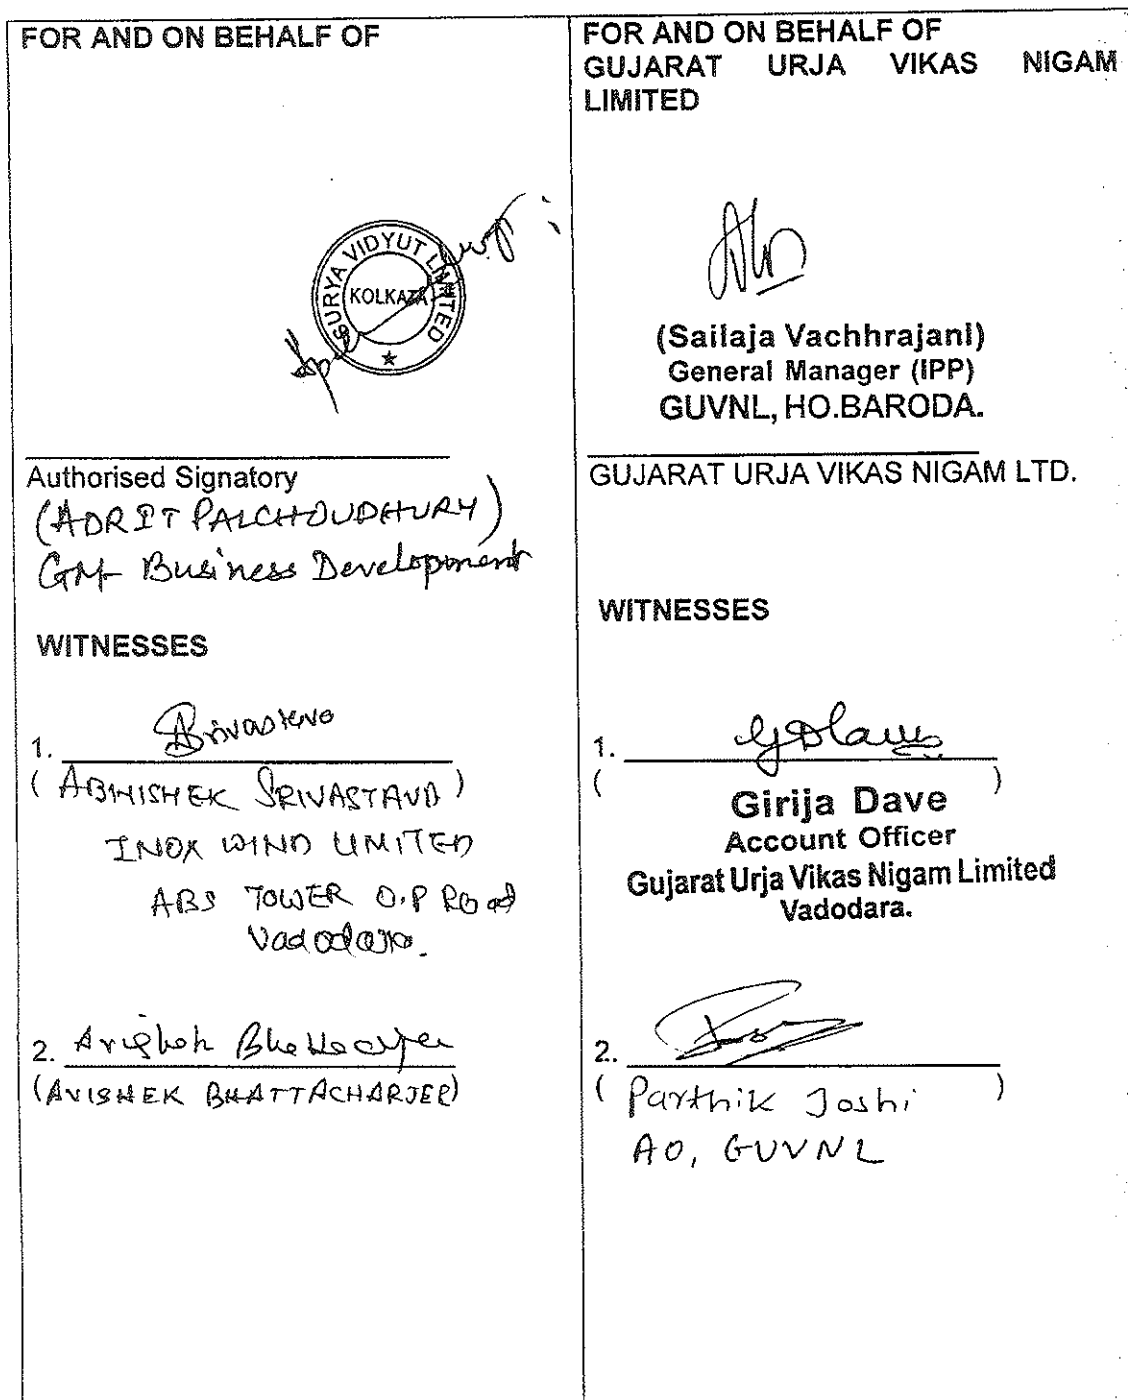 FOR AND ON BEHALF OF
SURYA VIDYUT LIMITED
KOLKATA
Authorised Signatory
(ADRIT PALCHOUDHURY)
GM- Business Development
WITNESSES
1. Srivastava
(ABHISHEK SRIVASTAVA)
INOX WIND LIMITED
ABS TOWER O.P Road
Vadodara.
2. Avishek Bhattacharjee
(AVISHEK BHATTACHARJEE)
FOR AND ON BEHALF OF
GUJARAT URJA VIKAS NIGAM
LIMITED
(Sailaja Vachhrajani)
General Manager (IPP)
GUVNL, HO.BARODA.
GUJARAT URJA VIKAS NIGAM LTD.
WITNESSES
1.
( )
Girija Dave
Account Officer
Gujarat Urja Vikas Nigam Limited
Vadodara.
2.
( Parthik Joshi )
AO, GUVNL